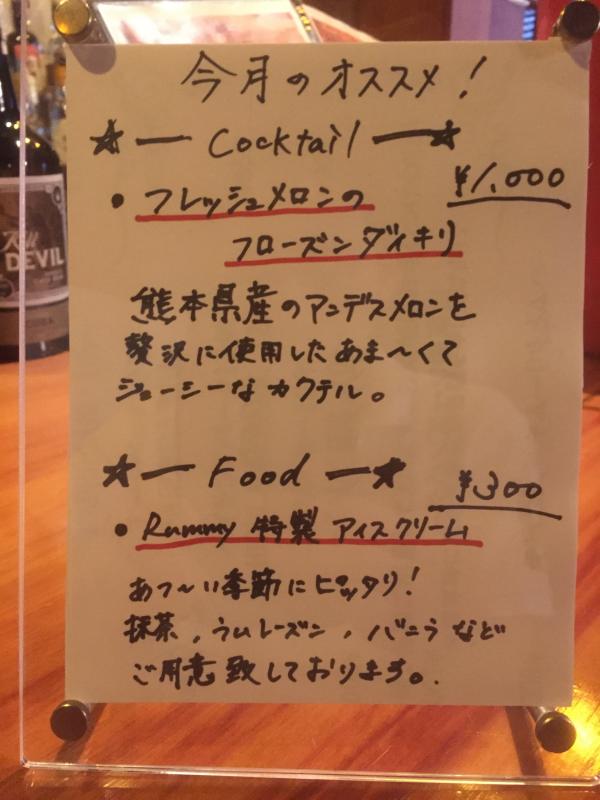 今月のオススメ!
★ー Cocktail ー★
¥1,000
• フレッシュメロンの
フローズンダイキリ
熊本県産のアンデスメロンを
贅沢に使用したあま〜くて
ジューシーなカクテル。
★ー Food ー★
¥300
• Rummy 特製 アイスクリーム
あつ〜い季節にピッタリ!
抹茶, ラムレーズン, バニラなど
ご用意致しております。
DEVIL